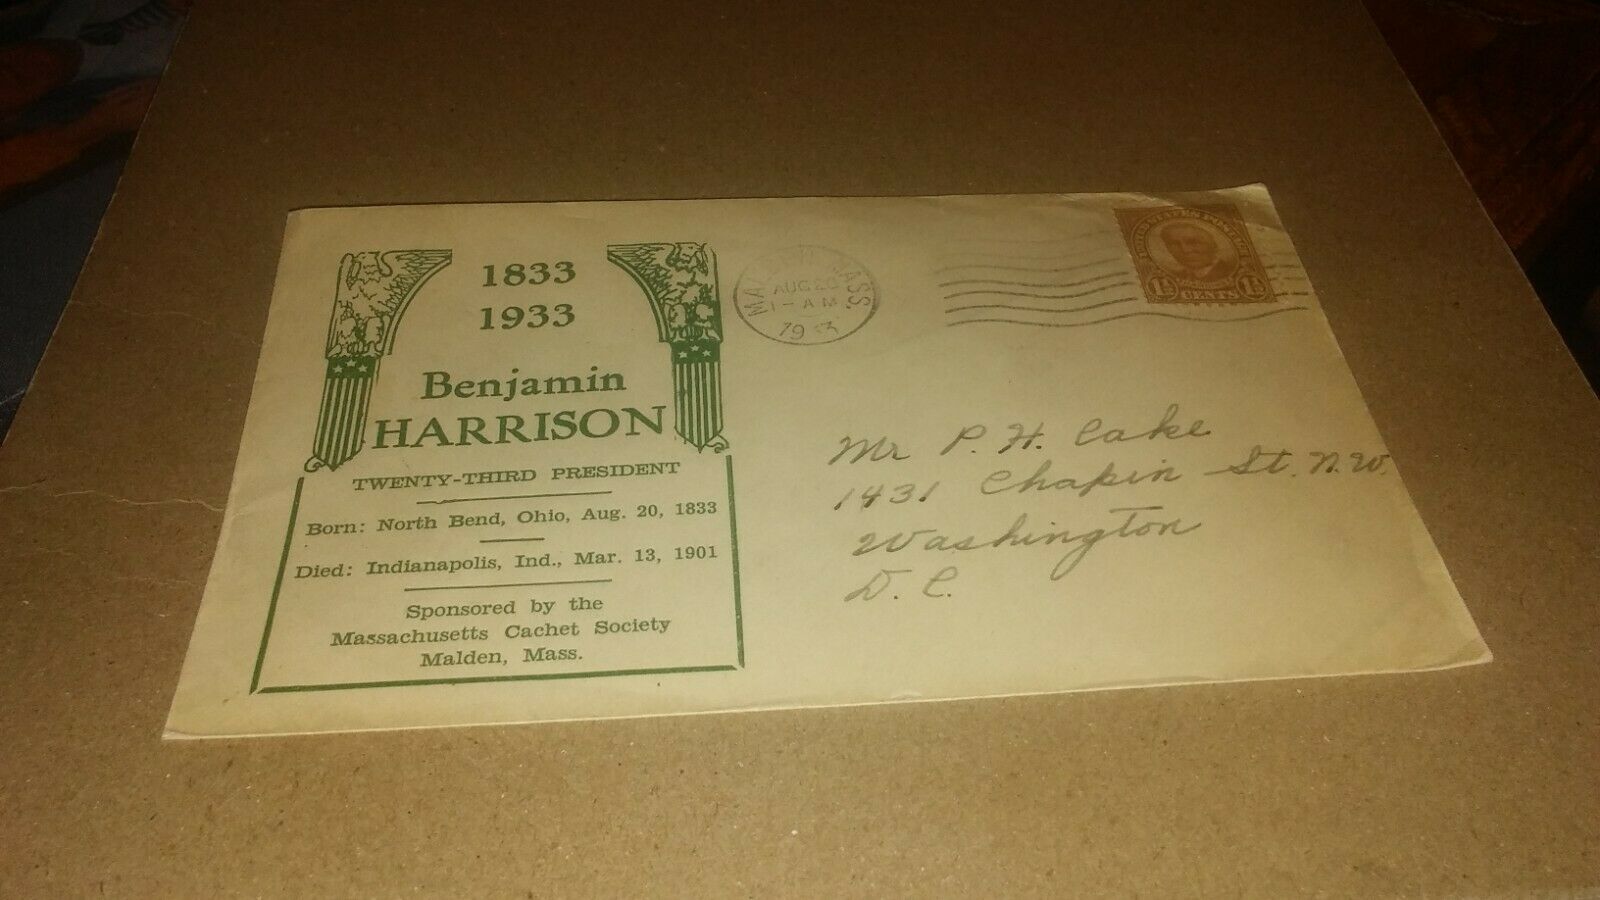 1833
1933
Benjamin
HARRISON
TWENTY-THIRD PRESIDENT
Born: North Bend, Ohio, Aug. 20, 1833
Died: Indianapolis, Ind., Mar. 13, 1901
Sponsored by the
Massachusetts Cachet Society
Malden, Mass.
MASS.
AUG 20
1-AM
193
UNITED STATES POSTAGE
1½ CENTS 1½
Mr P. H. Cake
1431 Chapin St. N.W.
Washington
D. C.